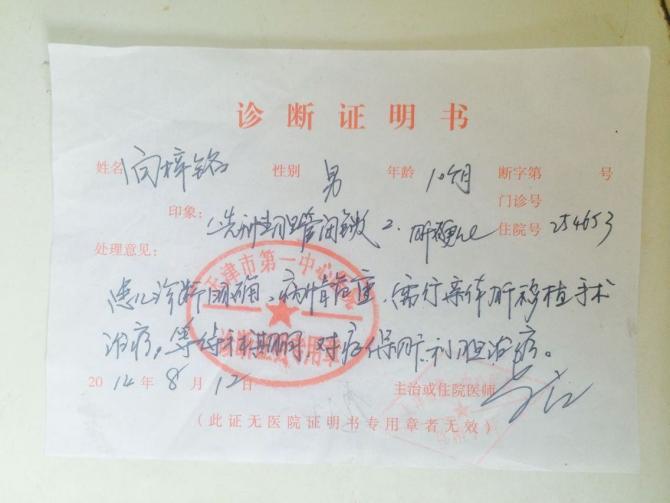 诊断证明书
姓名 向梓铭 性别 男 年龄 10个月 断字第 号
门诊号
印象: 1.先天性胆管闭锁 2.肝硬化 住院号 254653
处理意见:
患儿诊断明确,病情危重,需行亲体肝移植手术
治疗,等待手术期间,对症保肝利胆治疗。
2014年8月12日 主治或住院医师
(此证无医院证明书专用章者无效)
天津市第一中心医院